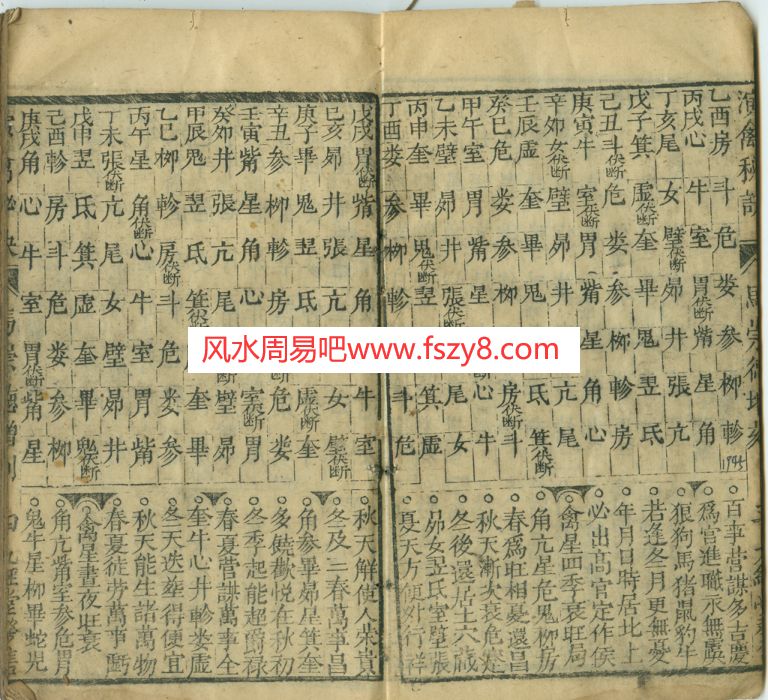 演禽秘訣 馬崇德增刻
乙酉房 斗 危 娄 参 柳 軫
丙戌心 牛 室 胃伏断 觜 星 角
丁亥尾 女 壁伏断 昴 井 張 亢
戊子箕 虛伏断 奎 畢 鬼 翌 氐
己丑斗伏断 危 娄 参 柳 軫 房
庚寅牛 室伏断 胃 觜 星 角 心
辛卯女伏断 壁 昴 井 亢 尾
壬辰虛 奎 畢 鬼 氐 箕伏断
癸巳危 娄 参 柳 房伏断 斗
甲午室 胃 觜 星 心 牛
乙未壁 昴 井 張伏断 尾 女
丙申奎 畢 鬼伏断 翌 箕 虛
丁酉娄 参 柳 軫 斗 危
百事营謀多吉慶
為官進職永無虞
狼狗馬猪鼠豹牛
若逢冬月更無憂
年月日時居北上
必出高官定作侯
禽星四季衰旺局
角亢星危鬼柳房
春為旺相憂還昌
秋天漸次衰危定
冬後還居土穴藏
昴女翌氐室壁張
夏天方便外行祥
戊戌胃伏断 觜 星 角 牛 室
己亥昴 井 張 亢 女 壁伏断
庚子畢 鬼 翌 氐 虛伏断 奎
辛丑参 柳 軫 房 危 娄
壬寅觜 星 角 心 室伏断 胃
癸卯井 張 亢 尾 壁 昴
甲辰鬼 翌 氐 箕伏断 奎 畢
乙巳柳 軫 房伏断 斗 危 娄 参
丙午星 角伏断 心 牛 室 胃 觜
丁未張伏断 亢 尾 女 壁 昴 井
戊申翌 氐 箕 虛 奎 畢 鬼伏断
己酉軫 房 斗 危 娄 参 柳
庚戌角 心 牛 室 胃伏断 觜 星
秋天解使人荣貴
冬及二春萬事昌
角参畢昴星箕奎
多饒歡悦在秋初
冬季起能起爵禄
春夏营謀萬事全
奎牛心井軫娄虛
冬天迭遊得便宜
秋天能生諸萬物
春夏徒劳萬事虧
禽星晝夜旺衰
角亢觜室参危胃
鬼牛星柳畢蛇
风水周易吧www.fszy8.com